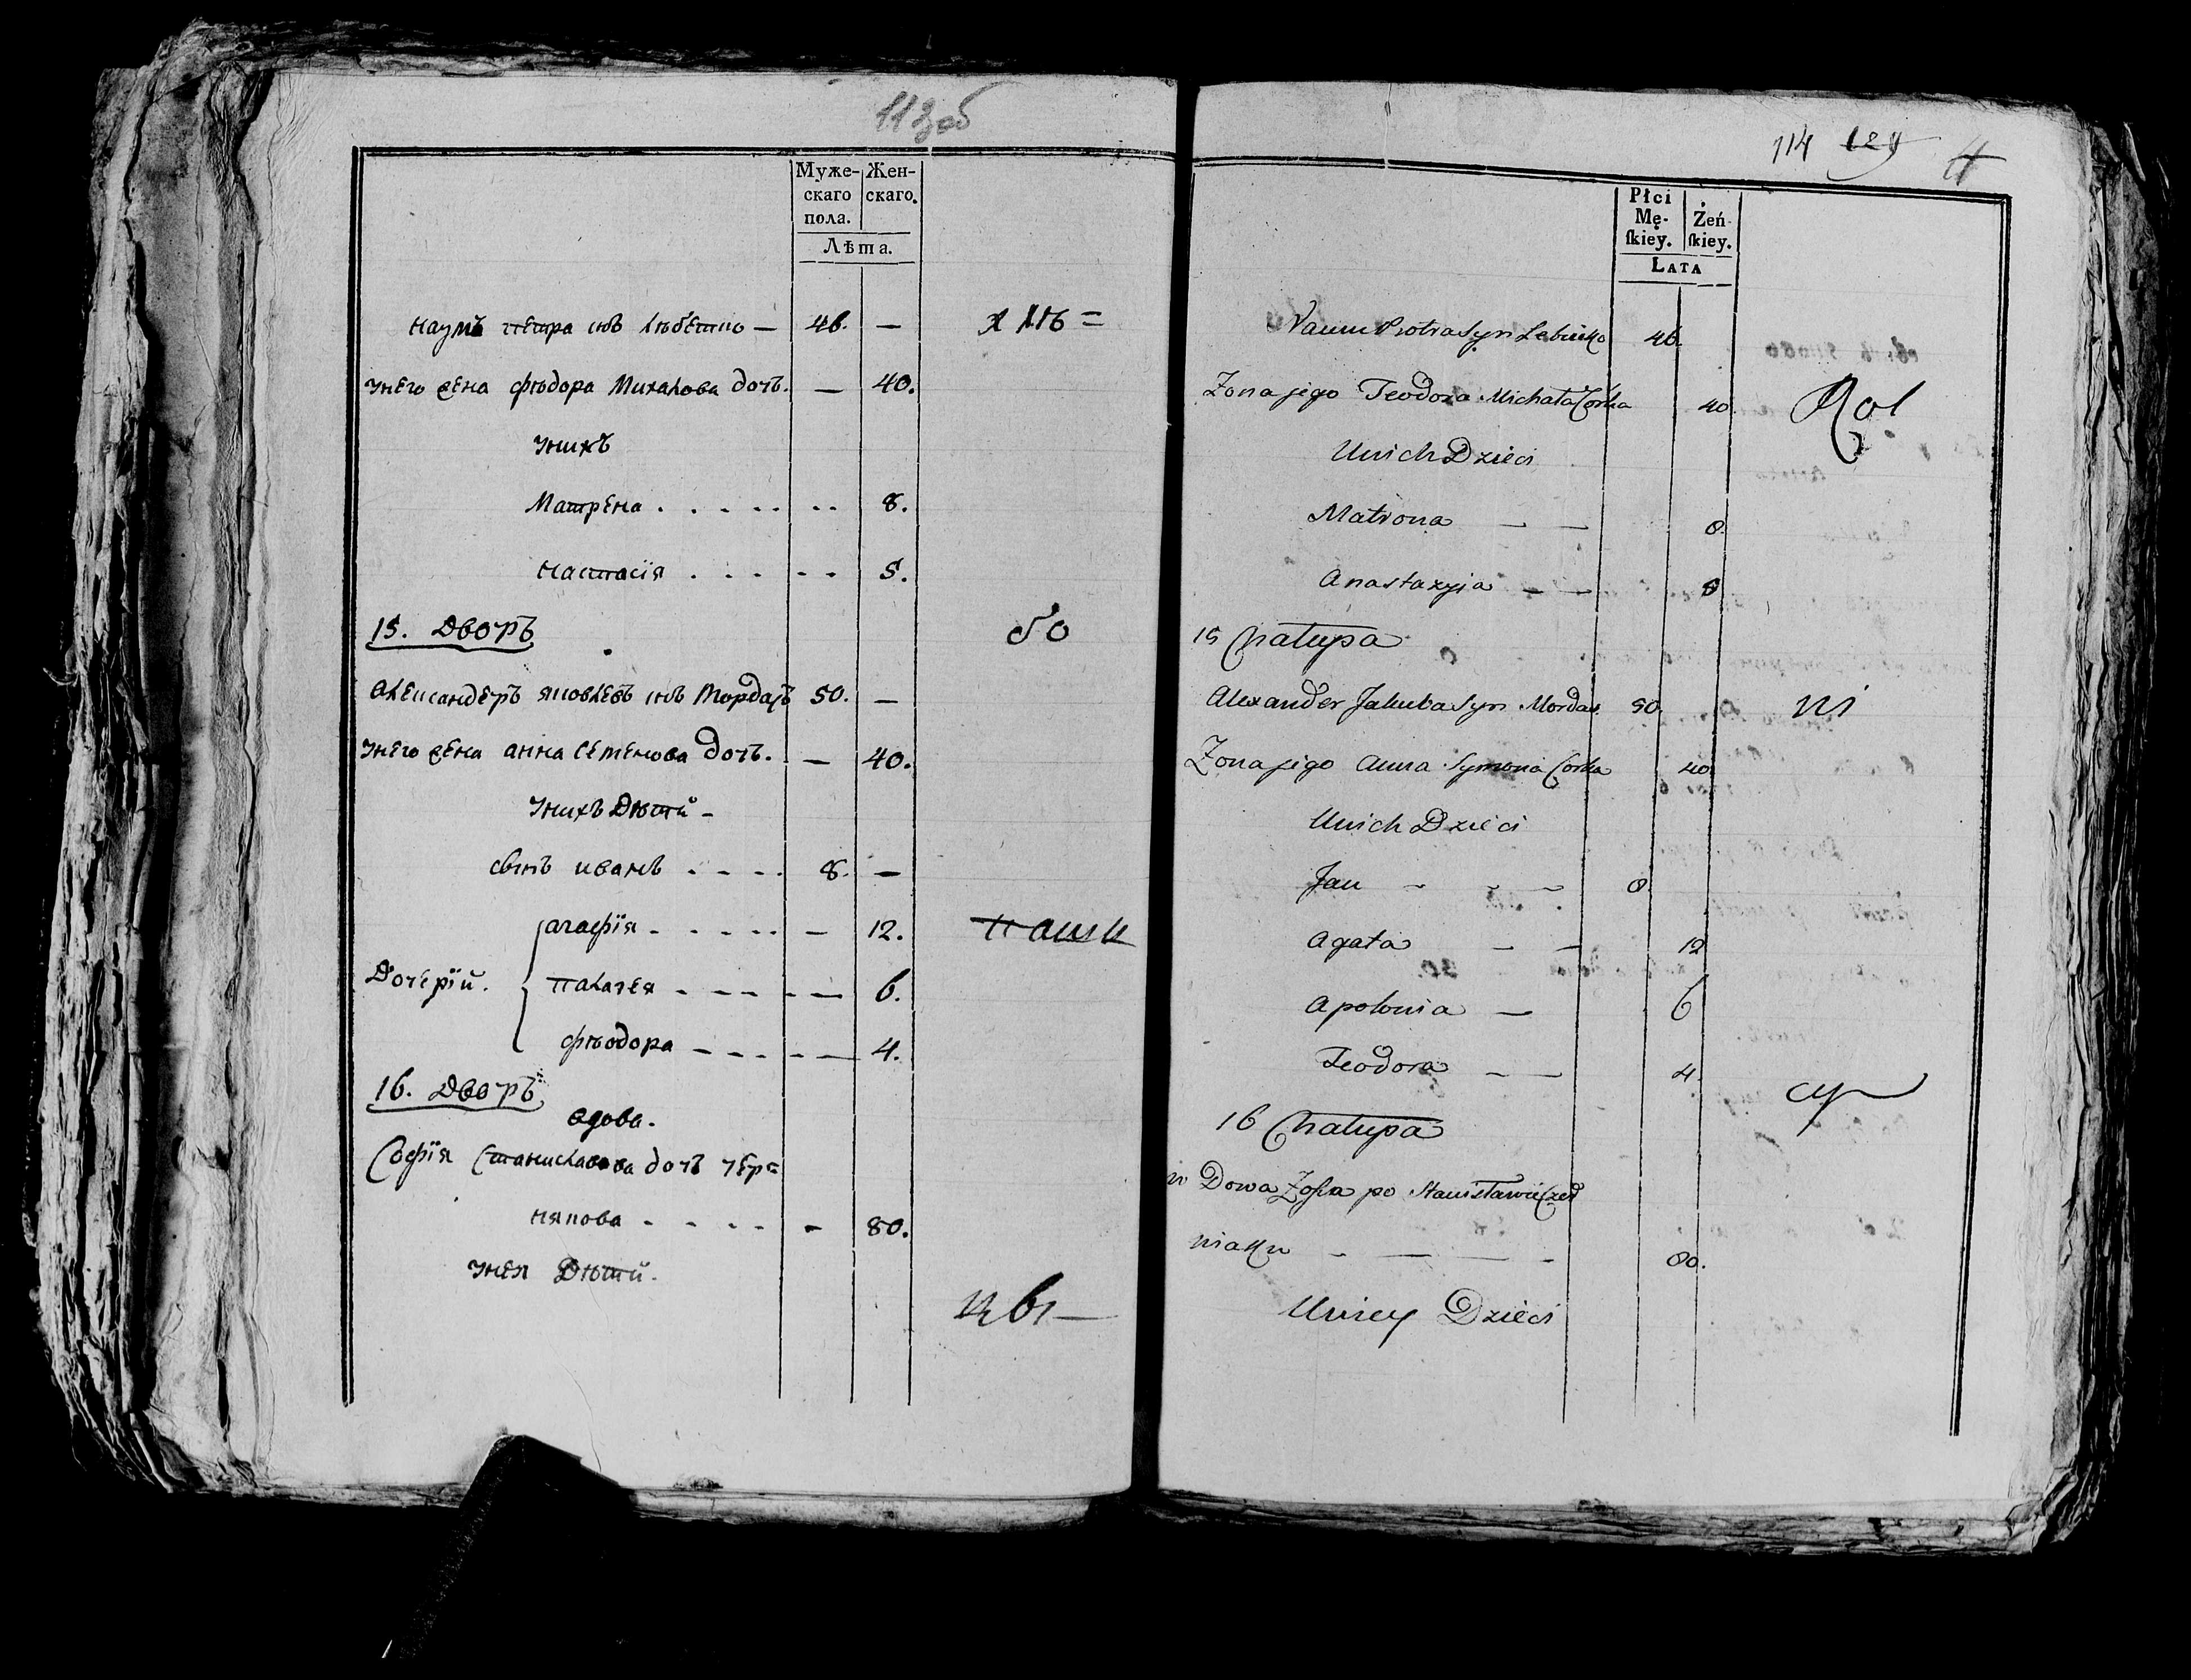 113об
Муже-
скаго
пола.
Жен-
скаго.
Лѣта.
наумъ петра снъ Любетко — 46. —
унего жена фѣодора Михалова дочь. — 40.
унихъ
Матрена . . . . . . . 8.
настасія . . . . . 5.
15. Дворъ
Александеръ яковлевъ снъ Мордасъ 50. —
унего жена анна Семенова дочь. — 40.
унихъ Дѣтй -
сынъ иванъ . - - . 8. —
агафїя - - - - - — 12.
Дочерїй.
палагея - - - - — 6.
фѣодора - - - - — 4.
16. Дворъ
вдова.
Софїя Станиславова дочь чер=
някова - - - - - 80.
унея Дѣтй.
бо
114 129
Płci
Mę-
ſkiey.
Żeń-
ſkiey.
Lata
Naum Piotra Syn Lebietko 46.
Zona jego Teodora Michała Corka 40.
Unich Dzieci
Matrona — — 8.
Anastazyia — — 5
15 Chałupa
Alexander Jakuba Syn Mordas. 50.
Zona jego Anna Symona Corka 40.
Unich Dzieci
Jan - - — 8.
Agata — — 12
Apolonia — 6
Teodora — — 4.
16 Chałupa
w Dowa Zofia po Stanisławie Czer
niaku - — — - 80.
Uniey Dzieci
ni